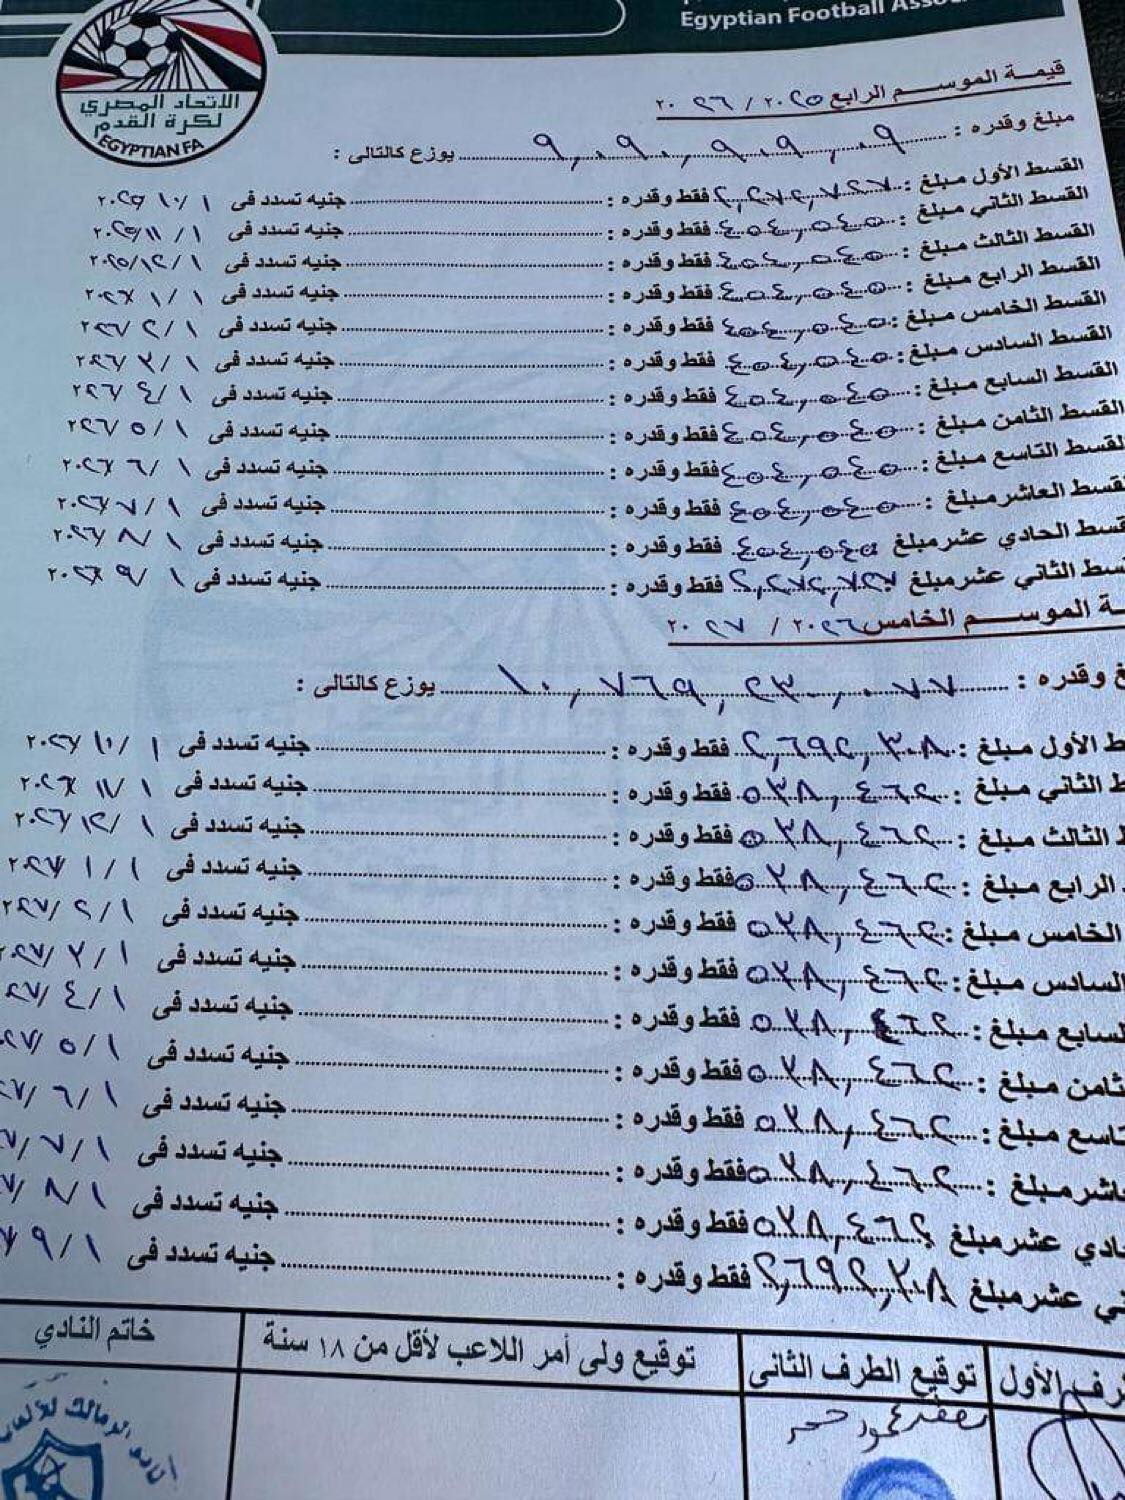 Egyptian Football
الاتحاد المصري
لكرة القدم
EGYPTIAN FA
قيمة الموسم الرابع ٢٠٢٥ / ٢٠٢٦
مبلغ وقدره : ٩,٠٩٠,٩٠٩,٠٩ يوزع كالتالى :
القسط الأول مبلغ : ٢,٢٧٢,٧٢٧ فقط وقدره : جنيه تسدد فى ١ / ١٠ / ٢٠٢٥
القسط الثاني مبلغ : ٤٥٤,٥٤٥ فقط وقدره : جنيه تسدد فى ١ / ١١ / ٢٠٢٥
القسط الثالث مبلغ : ٤٥٤,٥٤٥ فقط وقدره : جنيه تسدد فى ١ / ١٢ / ٢٠٢٥
القسط الرابع مبلغ : ٤٥٤,٥٤٥ فقط وقدره : جنيه تسدد فى ١ / ١ / ٢٠٢٦
القسط الخامس مبلغ : ٤٥٤,٥٤٥ فقط وقدره : جنيه تسدد فى ١ / ٢ / ٢٠٢٦
القسط السادس مبلغ : ٤٥٤,٥٤٥ فقط وقدره : جنيه تسدد فى ١ / ٣ / ٢٠٢٦
القسط السابع مبلغ : ٤٥٤,٥٤٥ فقط وقدره : جنيه تسدد فى ١ / ٤ / ٢٠٢٦
القسط الثامن مبلغ : ٤٥٤,٥٤٥ فقط وقدره : جنيه تسدد فى ١ / ٥ / ٢٠٢٦
القسط التاسع مبلغ : ٤٥٤,٥٤٥ فقط وقدره : جنيه تسدد فى ١ / ٦ / ٢٠٢٦
لقسط العاشر مبلغ : ٤٥٤,٥٤٥ فقط وقدره : جنيه تسدد فى ١ / ٧ / ٢٠٢٦
قسط الحادي عشر مبلغ ٤٥٤,٥٤٥ فقط وقدره : جنيه تسدد فى ١ / ٨ / ٢٠٢٦
سط الثاني عشر مبلغ ٢,٢٧٢,٧٢٧ فقط وقدره : جنيه تسدد فى ١ / ٩ / ٢٠٢٦
ـة الموسم الخامس ٢٠٢٦ / ٢٠٢٧
غ وقدره : ١٠,٧٦٩,٢٣٠,٠٧٧ يوزع كالتالى :
ط الأول مبلغ : ٢,٦٩٢,٣٠٨ فقط وقدره : جنيه تسدد فى ١ / ١٠ / ٢٠٢٦
ط الثاني مبلغ : ٥٣٨,٤٦٢ فقط وقدره : جنيه تسدد فى ١ / ١١ / ٢٠٢٦
ط الثالث مبلغ : ٥٣٨,٤٦٢ فقط وقدره : جنيه تسدد فى ١ / ١٢ / ٢٠٢٦
الرابع مبلغ : ٥٣٨,٤٦٢ فقط وقدره : جنيه تسدد فى ١ / ١ / ٢٠٢٧
الخامس مبلغ : ٥٣٨,٤٦٢ فقط وقدره : جنيه تسدد فى ١ / ٢ / ٢٠٢٧
السادس مبلغ : ٥٣٨,٤٦٢ فقط وقدره : جنيه تسدد فى ١ / ٣ / ٠٢٧
لسابع مبلغ : ٥٣٨,٤٦٢ فقط وقدره : جنيه تسدد فى ١ / ٤ / ٠٢٧
ثامن مبلغ : ٥٣٨,٤٦٢ فقط وقدره : جنيه تسدد فى ١ / ٥ / ٠٢٧
تاسع مبلغ : ٥٣٨,٤٦٢ فقط وقدره : جنيه تسدد فى ١ / ٦ / ٢٧
اشر مبلغ : ٥٣٨,٤٦٢ فقط وقدره : جنيه تسدد فى ١ / ٧ / ٧
ادي عشر مبلغ ٥٣٨,٤٦٢ فقط وقدره : جنيه تسدد فى ١ / ٨ / ٧
ني عشر مبلغ ٢,٦٩٢,٣٠٨ فقط وقدره : جنيه تسدد فى ١ / ٩ / ٧
رف الأول توقيع الطرف الثانى توقيع ولى أمر اللاعب لأقل من ١٨ سنة خاتم النادي
محمود
نادي الزمالك